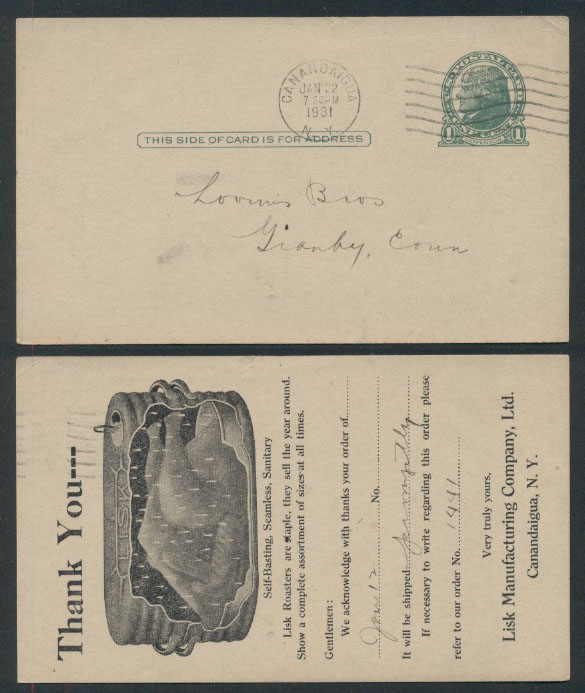 CANANDAIGUA
JAN 22
7 30PM
1931
N.Y.
U.S. POSTAGE
1 ONE CENT 1
JEFFERSON
THIS SIDE OF CARD IS FOR ADDRESS
Loomis Bros
Granby, Conn
Thank You---
LISK
Self-Basting, Seamless, Sanitary
Lisk Roasters are staple, they sell the year around.
Show a complete assortment of sizes at all times.
Gentlemen:
We acknowledge with thanks your order of
Jan 12 No.
It will be shipped promptly
If necessary to write regarding this order please
refer to our order No. 1441
Very truly yours,
Lisk Manufacturing Company, Ltd.
Canandaigua, N. Y.